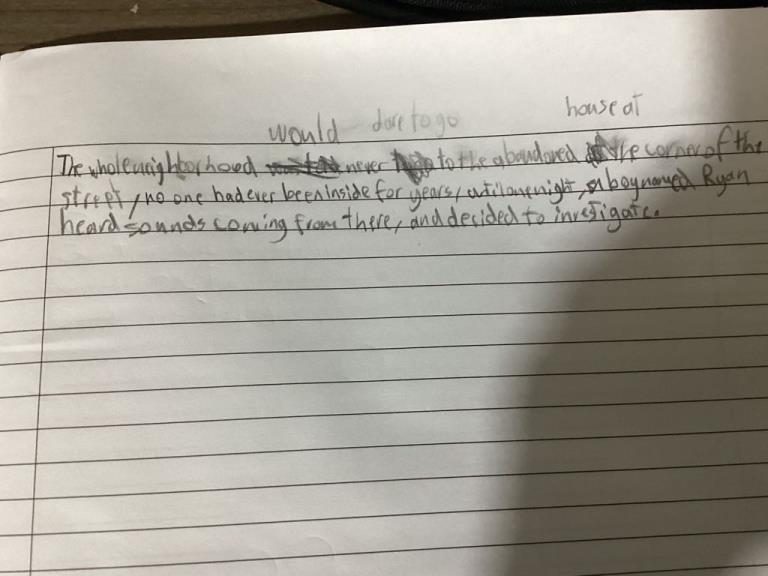 would dare to go house at
The whole neighborhood never to the abandoned the corner of the
street, no one had ever been inside for years, until one night, a boy named Ryan
heard sounds coming from there, and decided to investigate.